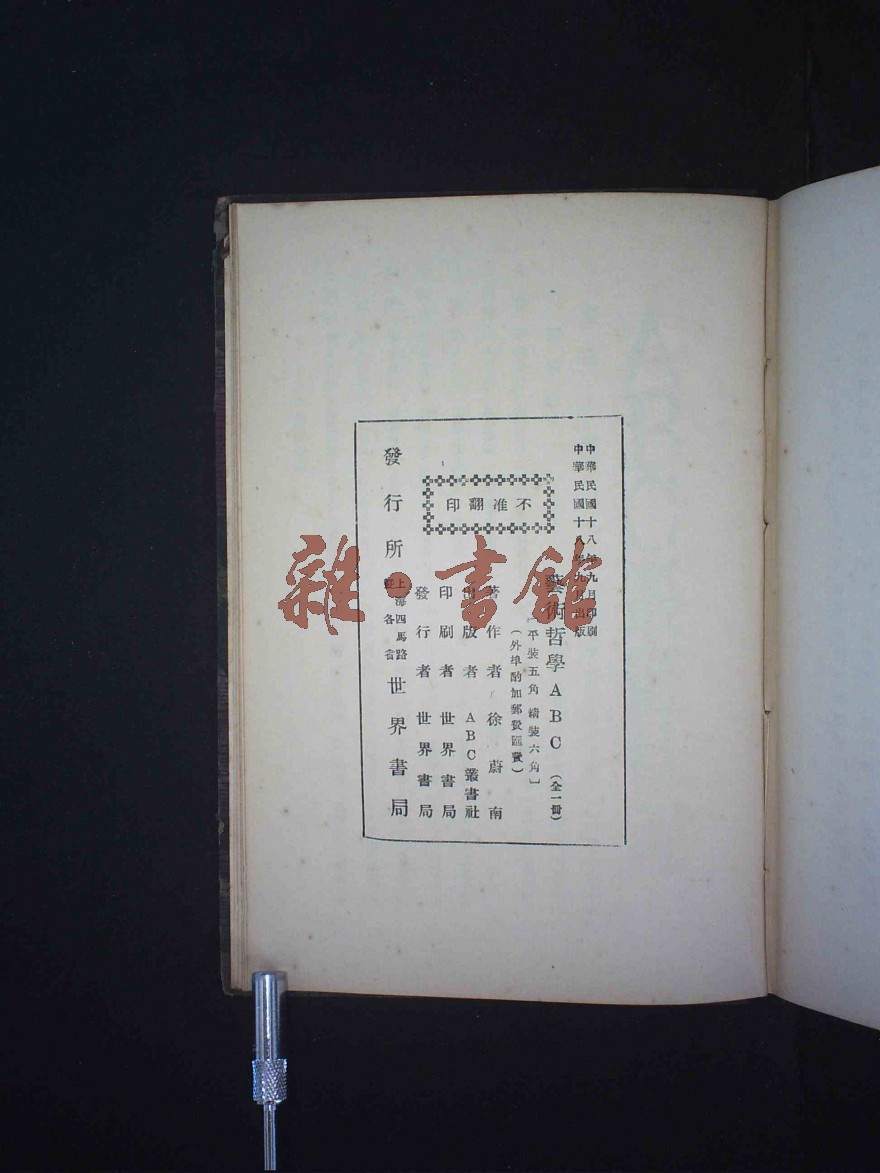 中華民國十八年九月印刷
中華民國十八年九月出版
藝術哲學ABC（全一冊）
〔平裝五角 精裝六角〕
（外埠酌加郵費匯費）
不准翻印
著作者 徐蔚南
出版者 ABC叢書社
印刷者 世界書局
發行者 世界書局
發行所 上海四馬路 暨各省 世界書局
雜·書館